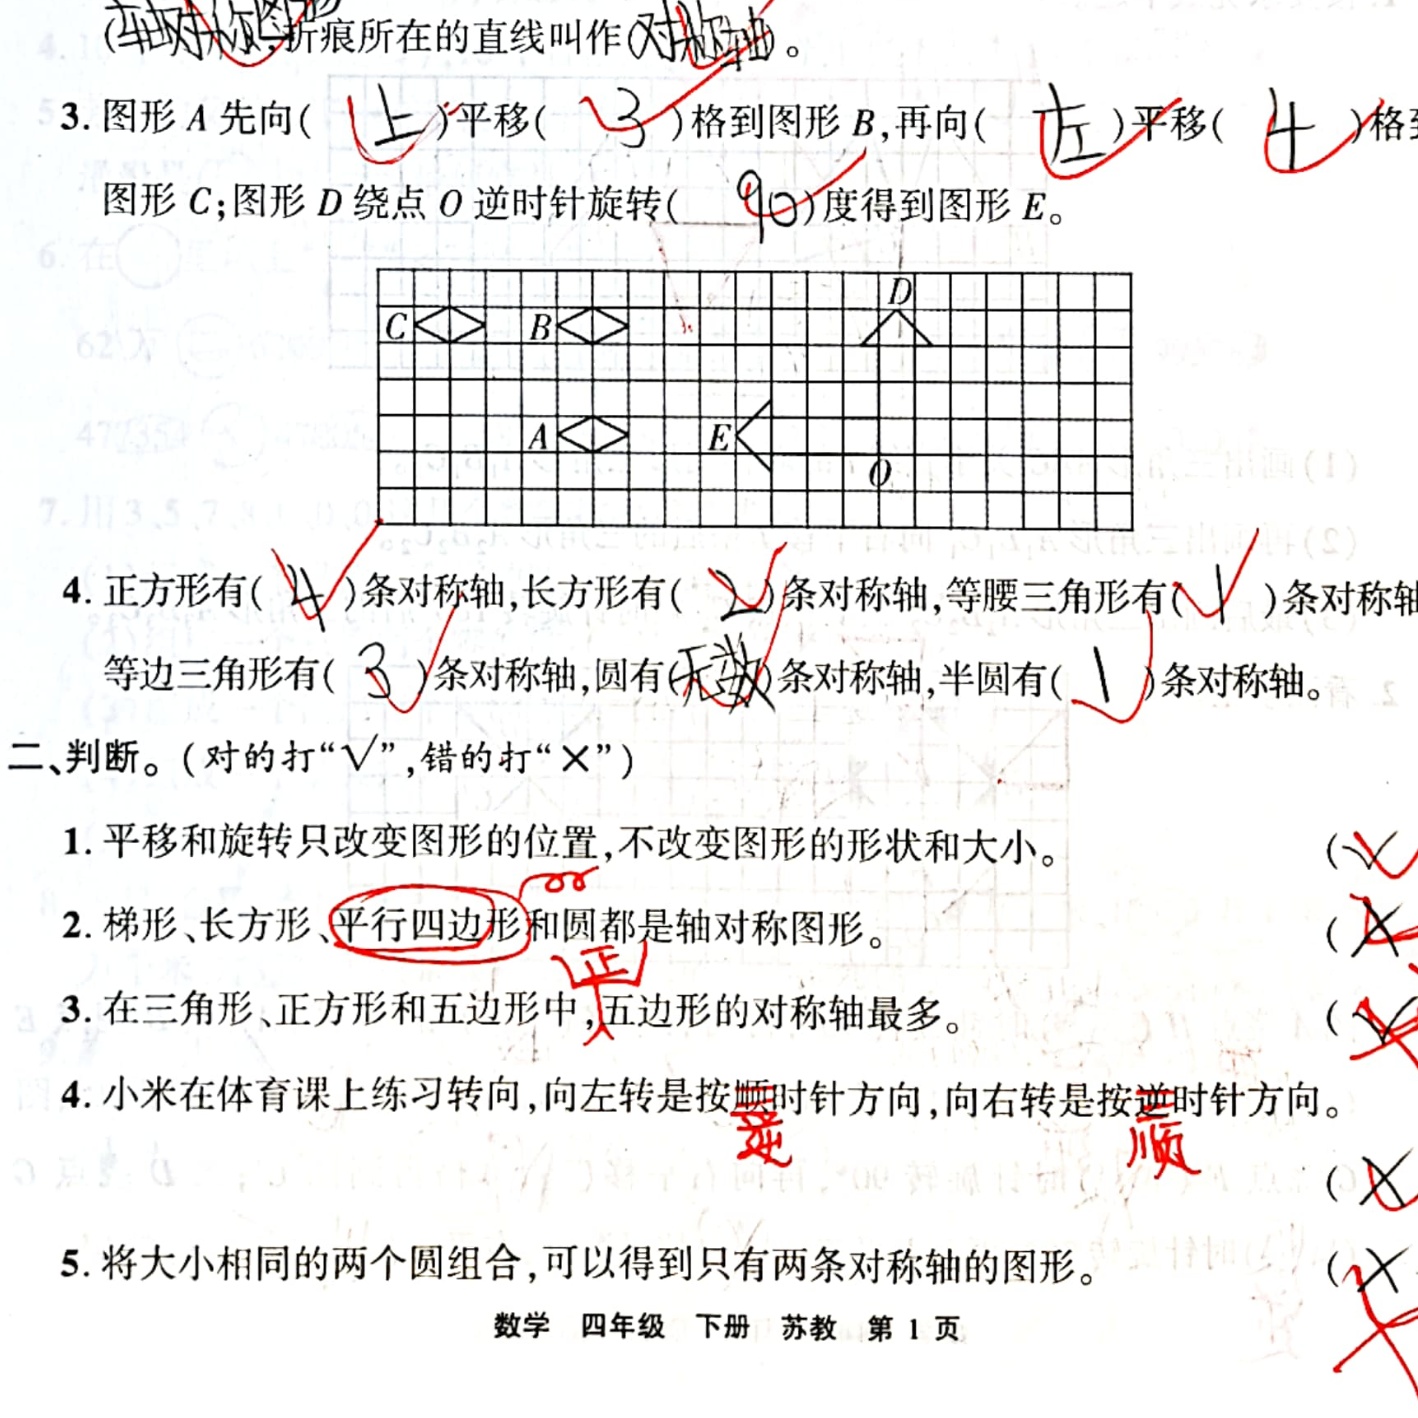 (轴对称图形),折痕所在的直线叫作(对称轴)。
3. 图形 A 先向( 上 )平移( 3 )格到图形 B,再向( 左 )平移( 4 )格到
图形 C;图形 D 绕点 O 逆时针旋转( 90 )度得到图形 E。
D
C B
A E
O
4. 正方形有( 4 )条对称轴,长方形有( 2 )条对称轴,等腰三角形有( 1 )条对称轴
等边三角形有( 3 )条对称轴,圆有(无数)条对称轴,半圆有( 1 )条对称轴。
二、判断。(对的打“√”,错的打“×”)
1. 平移和旋转只改变图形的位置,不改变图形的形状和大小。 (√
2. 梯形、长方形、平行四边形和圆都是轴对称图形。 (×
正
3. 在三角形、正方形和五边形中,五边形的对称轴最多。 (√
4. 小米在体育课上练习转向,向左转是按顺时针方向,向右转是按逆时针方向。
逆 顺
(×
5. 将大小相同的两个圆组合,可以得到只有两条对称轴的图形。 (×
数学 四年级 下册 苏教 第 1 页